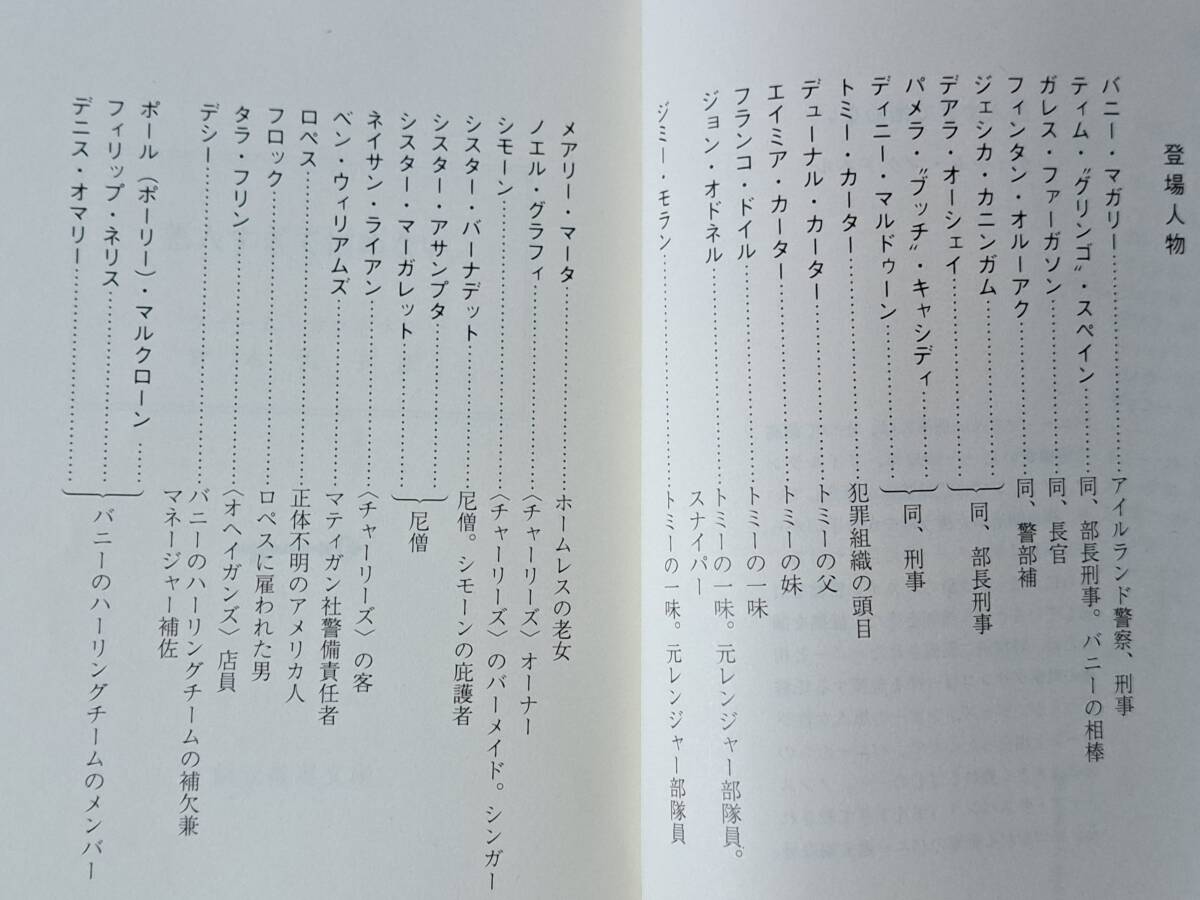 登場人物
バニー・マガリー……アイルランド警察、刑事
ティム・〝グリンゴ〟・スペイン……同、部長刑事。バニーの相棒
ガレス・ファーガソン……同、長官
フィンタン・オルーアク……同、警部補
ジェシカ・カニンガム……
デアラ・オーシェイ……
同、部長刑事
パメラ・〝ブッチ〟・キャシディ……
ディニー・マルドゥーン……
同、刑事
トミー・カーター……犯罪組織の頭目
デューナル・カーター……トミーの父
エイミア・カーター……トミーの妹
フランコ・ドイル……トミーの一味
ジョン・オドネル……トミーの一味。元レンジャー部隊員。
スナイパー
ジミー・モラン……トミーの一味。元レンジャー部隊員
メアリー・マータ……ホームレスの老女
ノエル・グラフィ……〈チャーリーズ〉オーナー
シモーン……〈チャーリーズ〉のバーメイド。シンガー
シスター・バーナデット……尼僧。シモーンの庇護者
シスター・アサンプタ……
シスター・マーガレット……
尼僧
ネイサン・ライアン……〈チャーリーズ〉の客
ベン・ウィリアムズ……マティガン社警備責任者
ロペス……正体不明のアメリカ人
フロック……ロペスに雇われた男
タラ・フリン……〈オヘイガンズ〉店員
デシー……バニーのハーリングチームの補欠兼
マネージャー補佐
ポール（ポーリー）・マルクローン……
フィリップ・ネリス……
デニス・オマリー……
バニーのハーリングチームのメンバー